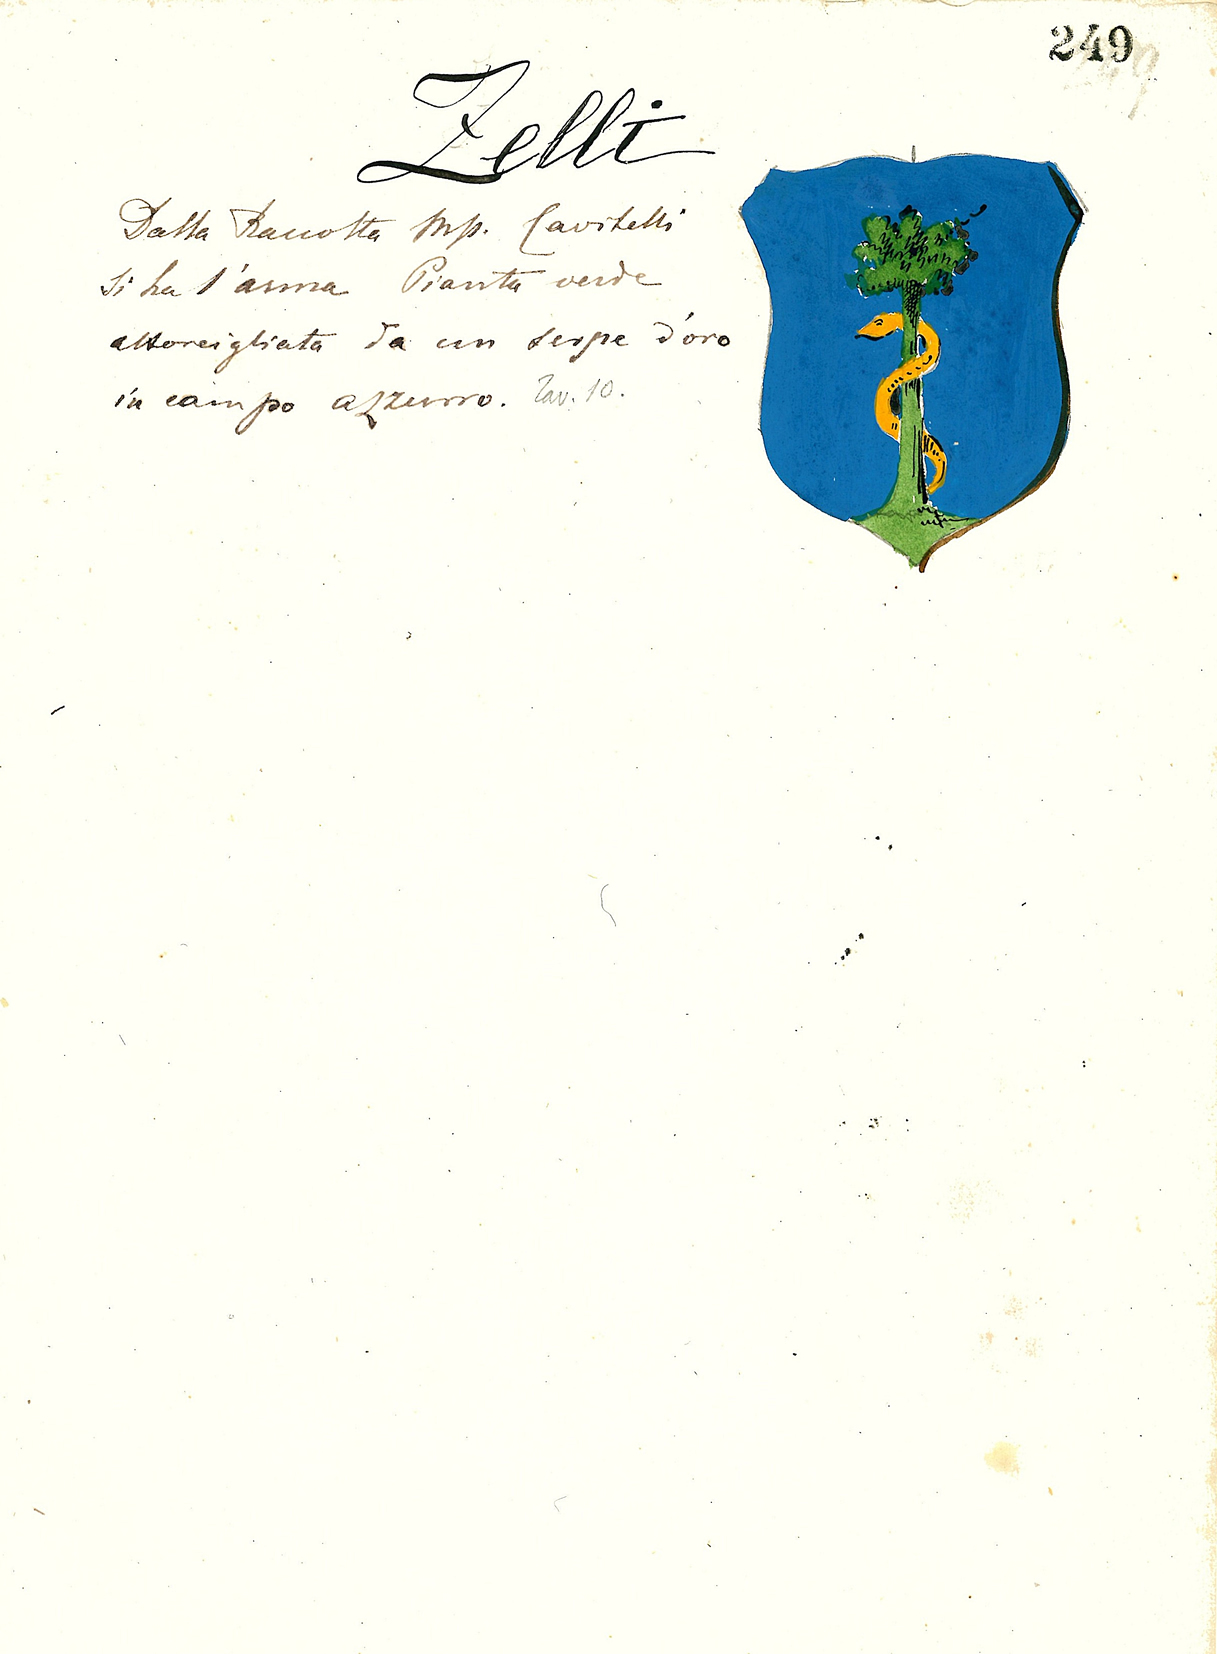 249
Zelli
Dalla Raccolta Mp. Cavitelli
si ha l'arma Pianta verde
attorcigliata da un serpe d'oro
in campo azzurro. Tav. 10.